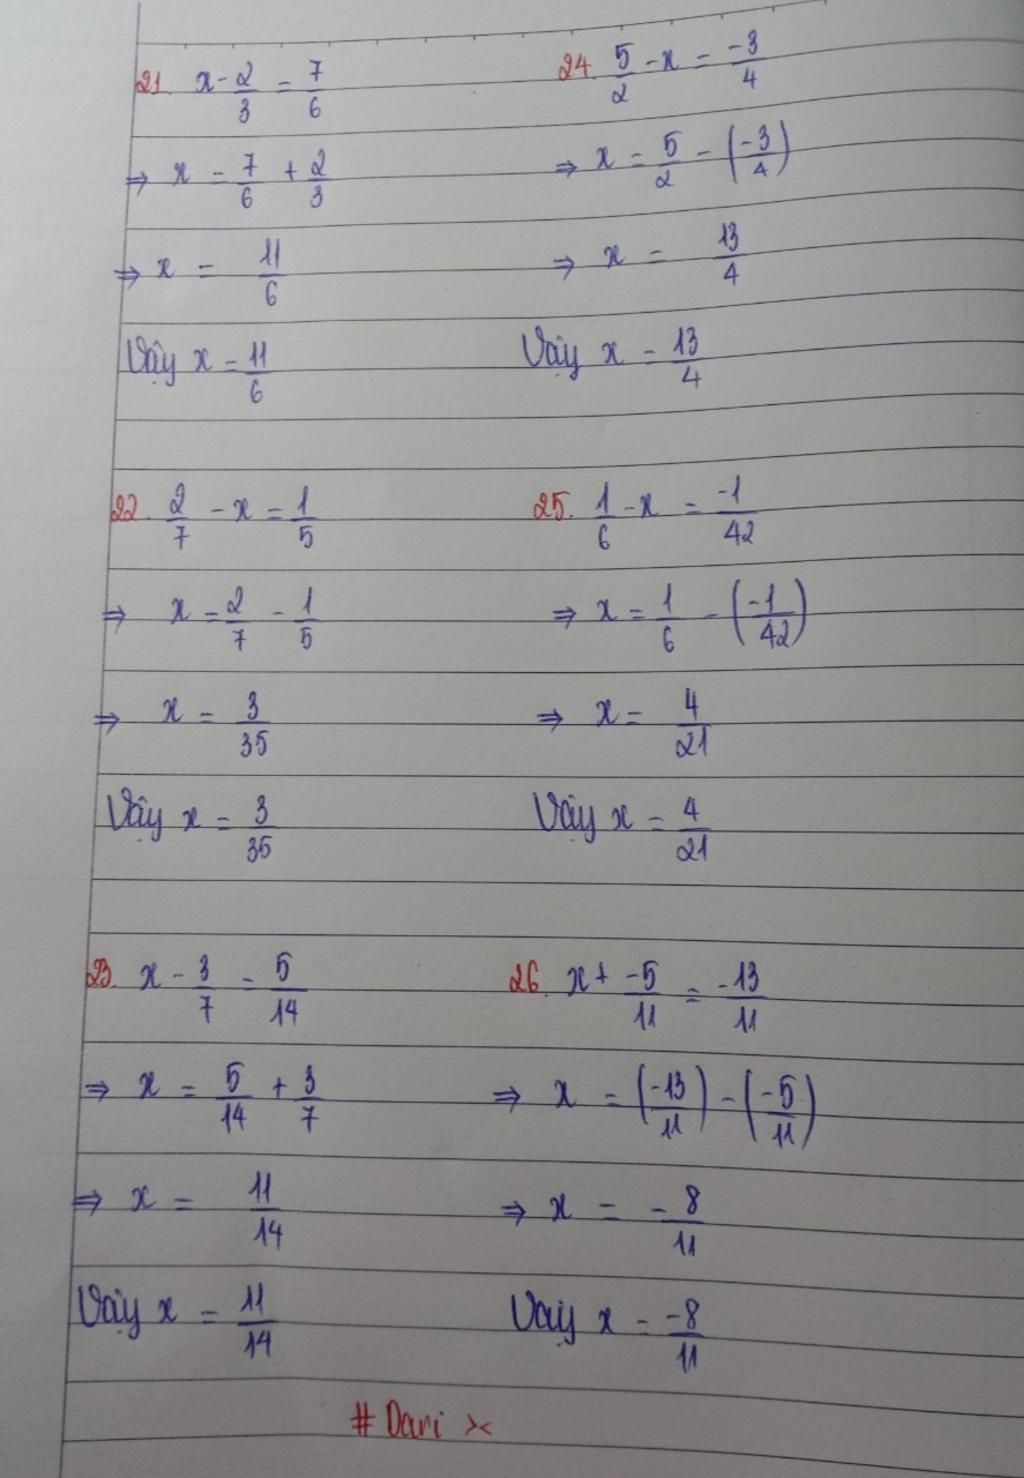 21. x - 2/3 = 7/6
⇒ x = 7/6 + 2/3
⇒ x = 11/6
Vậy x = 11/6
22. 2/7 - x = 1/5
⇒ x = 2/7 - 1/5
⇒ x = 3/35
Vậy x = 3/35
23. x - 3/7 = 5/14
⇒ x = 5/14 + 3/7
⇒ x = 11/14
Vậy x = 11/14
24. 5/2 - x = -3/4
⇒ x = 5/2 - (-3/4)
⇒ x = 13/4
Vậy x = 13/4
25. 1/6 - x = -1/42
⇒ x = 1/6 - (-1/42)
⇒ x = 4/21
Vậy x = 4/21
26. x + -5/11 = -13/11
⇒ x = (-13/11) - (-5/11)
⇒ x = -8/11
Vậy x = -8/11
# Dari ><